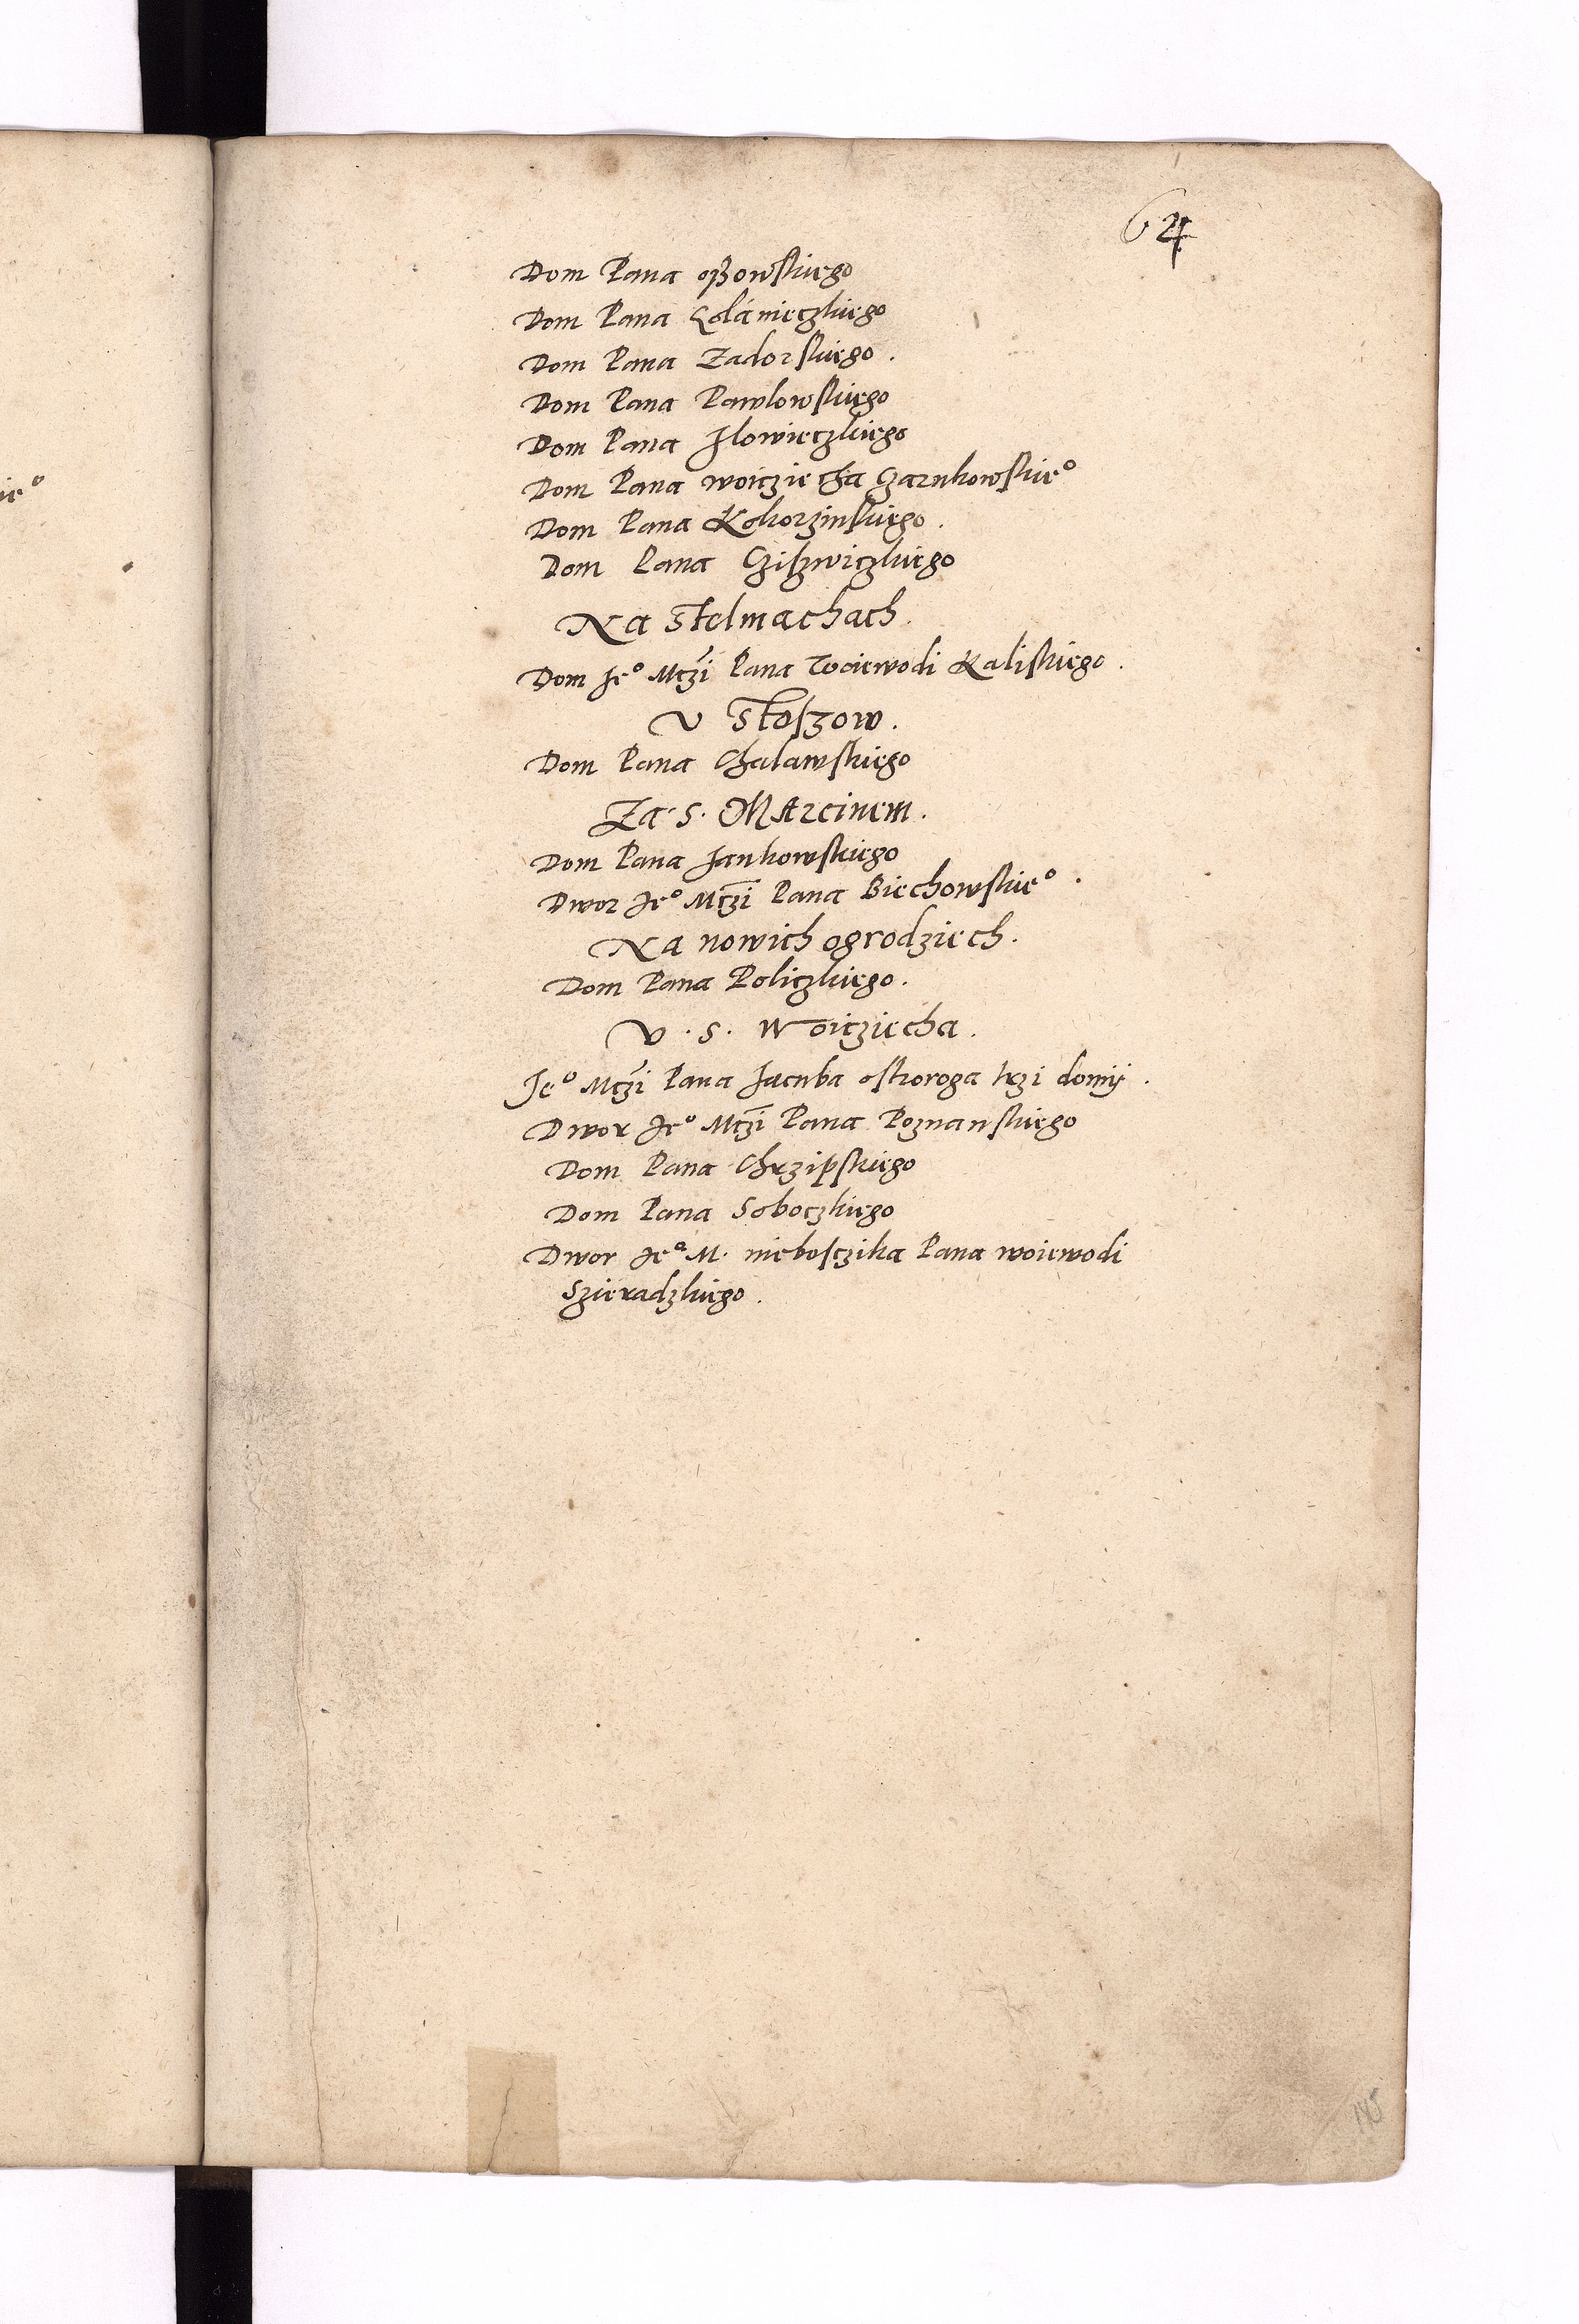 64
Dom Pana oßowskiego
Dom Pana Kołánieczkiego
Dom Pana Zadorskiego .
Dom Pana Pawłowskiego
Dom Pana Jłowieczkiego
Dom Pana woicziecha Czarnkowskieº
Dom Pana Kokorzinskiego .
Dom Pana Cziswiczkiego
Na Stelmachach .
Dom Jeº Mczi Pana Woiewodi Kaliskiego .
V Stoszow .
Dom Pana Chaławskiego
Za . S . Marcinem .
Dom Pana Jankowskiego
Dwor Jeº Mczi Pana Biechowskieº .
Na nowich ogrodziech .
Dom Pana Policzkiego .
V . S . Woicziecha .
Jeº Mczi Pana Jacuba ostroroga trzi domÿ .
Dwor Jeº Mczi Pana Poznanskiego
Dom Pana Chrzipskiego
Dom Pana Soboczkiego
Dwor Jeº M . niebosczika Pana woiewodi
Szieradzkiego .